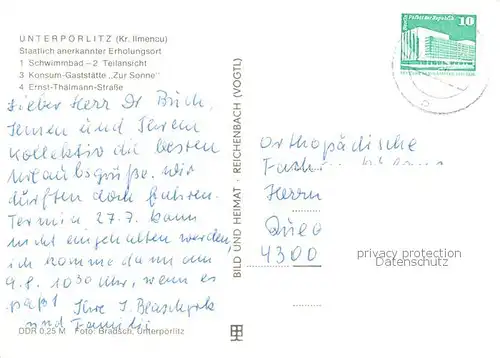 UNTERPÖRLITZ (Kr. Ilmenau)
Staatlich anerkannter Erholungsort
1 Schwimmbad – 2 Teilansicht
3 Konsum-Gaststätte „Zur Sonne"
4 Ernst-Thälmann-Straße
Lieber Herr Dr Buch,
Ihnen und Ihrem
Kollektiv die besten
Urlaubsgrüße. Wir
durften doch fahren.
Termin 27.7. kann
nicht eingehalten werden,
ich komme dann am
9.8. 10³⁰ Uhr, wenn es
paßt Ihre I.
und Familie
DDR 0,25 M Foto: Bradsch, Unterpörlitz
BILD UND HEIMAT · REICHENBACH (VOGTL)
10
Orthopädische
Herrn
4300
privacy protection
Datenschutz